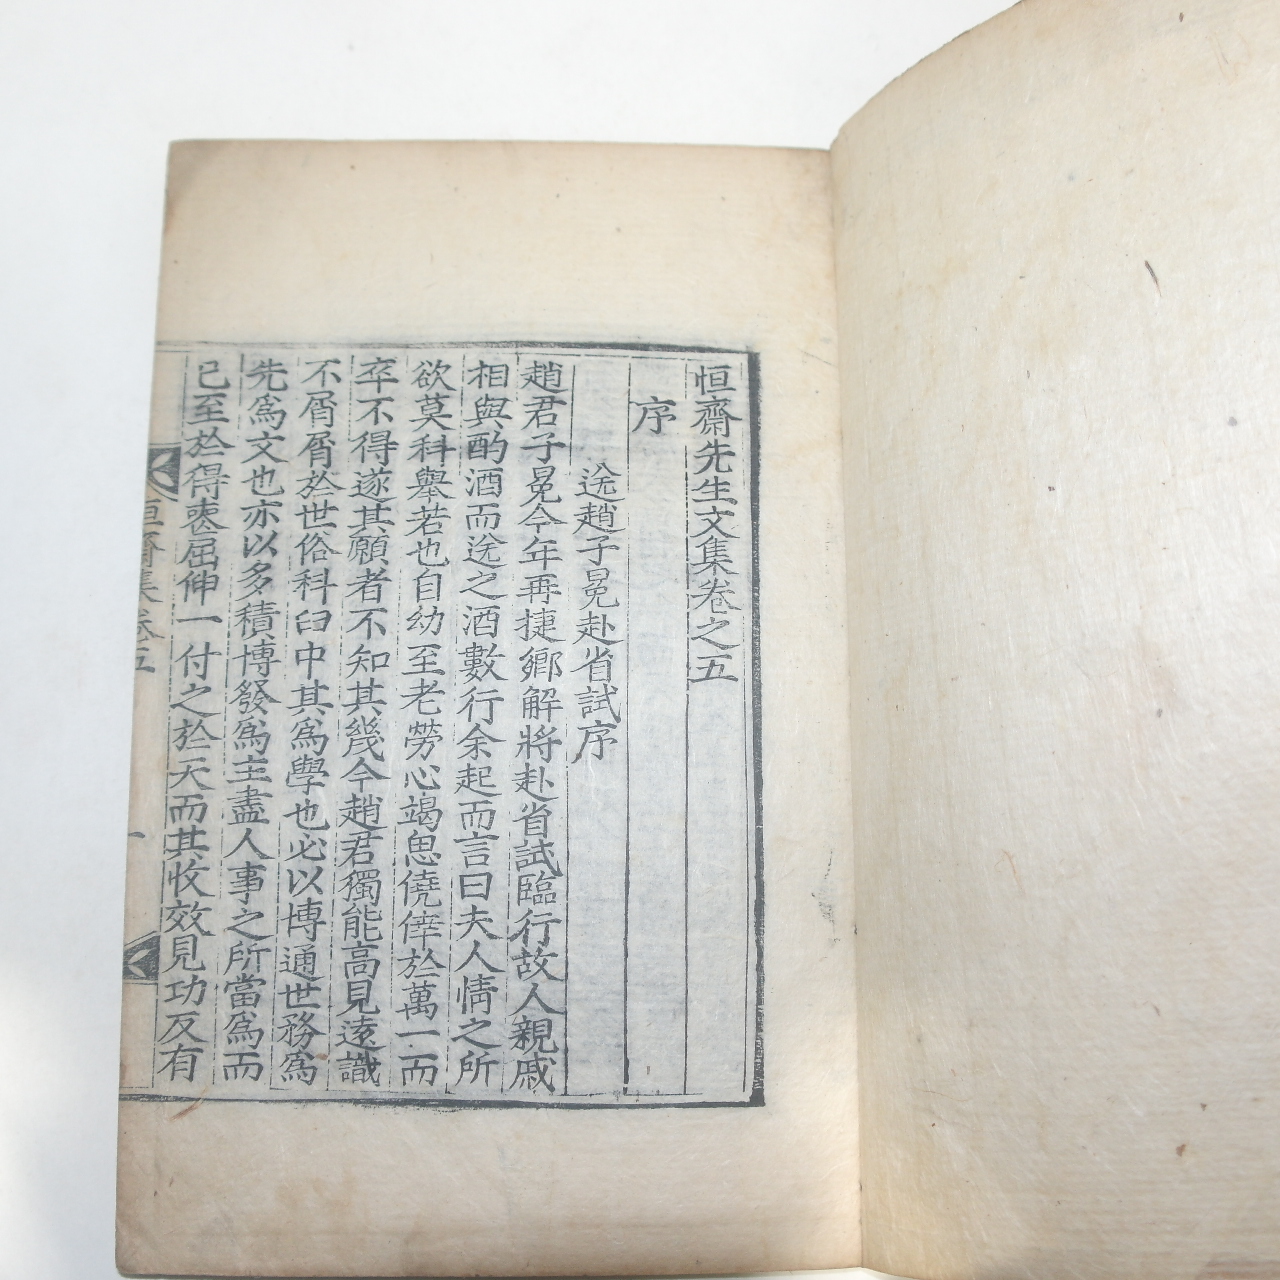 恒齋先生文集卷之五
序
送趙子冕赴省試序
趙君子冕今年再捷鄕解將赴省試臨行故人親戚
相與酌酒而送之酒數行余起而言曰夫人情之所
欲莫科擧若也自幼至老勞心竭思僥倖於萬一而
卒不得遂其願者不知其幾今趙君獨能高見遠識
不屑屑於世俗科臼中其爲學也必以博通世務爲
先爲文也亦以多積博發爲主盡人事之所當爲而
已至於得喪屈伸一付之於天而其收效見功反有
恒齋集卷五
一